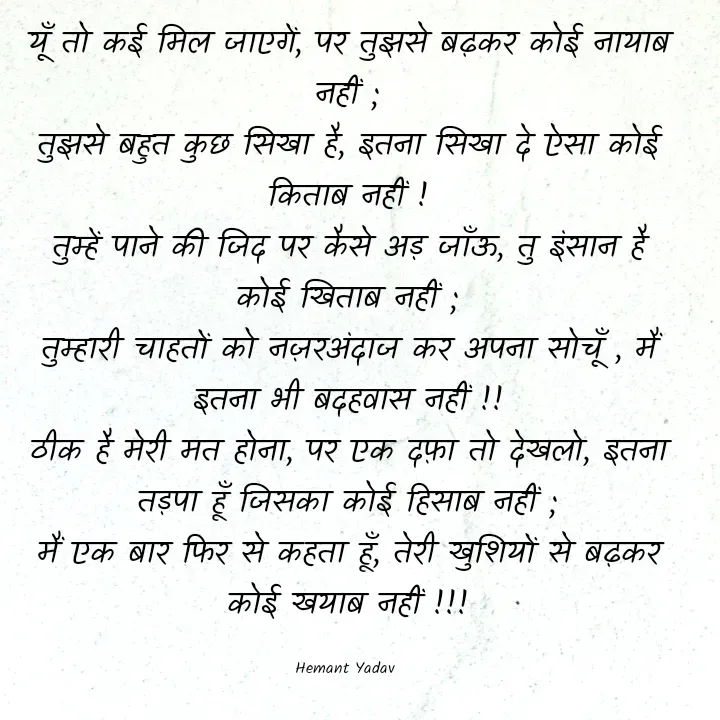 यूँ तो कई मिल जाएगें, पर तुझसे बढ़कर कोई नायाब
नहीं ;
तुझसे बहुत कुछ सिखा है, इतना सिखा दे ऐसा कोई
किताब नहीं !
तुम्हें पाने की जिद पर कैसे अड़ जाँऊ, तु इंसान है
कोई खिताब नहीं ;
तुम्हारी चाहतों को नज़रअंदाज कर अपना सोचूँ , मैं
इतना भी बदहवास नहीं !!
ठीक है मेरी मत होना, पर एक दफ़ा तो देखलो, इतना
तड़पा हूँ जिसका कोई हिसाब नहीं ;
मैं एक बार फिर से कहता हूँ, तेरी खुशियों से बढ़कर
कोई खयाब नहीं !!!
Hemant Yadav